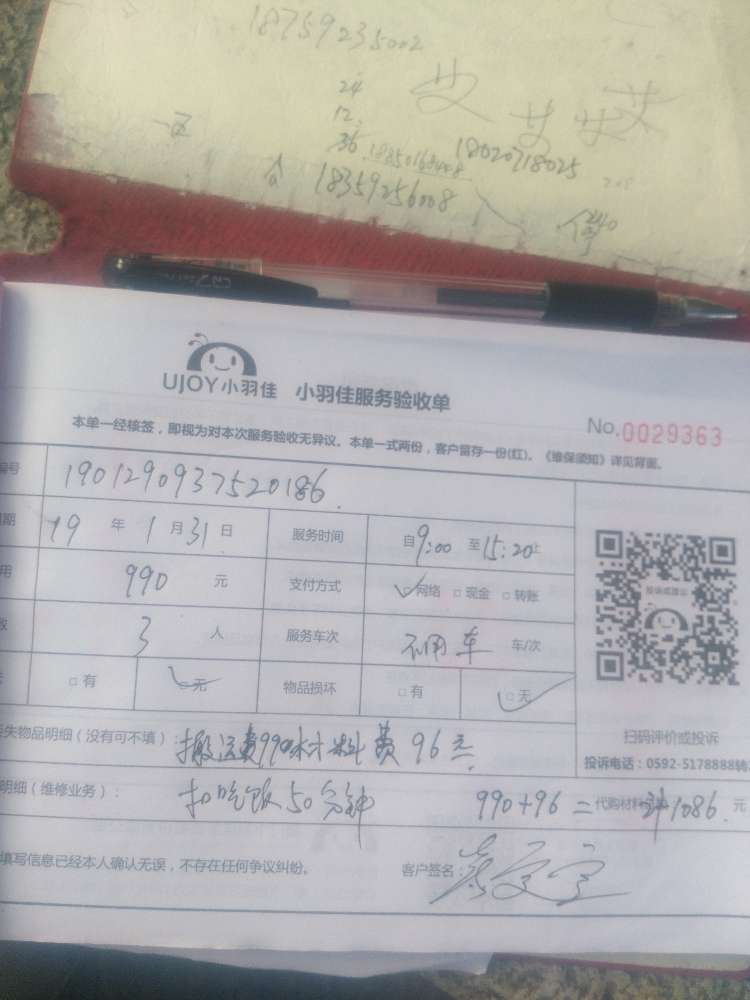 18759235002
24
12
36 18850168448 18020718025
一区
18359256008
240
UJOY小羽佳 小羽佳服务验收单
No.0029363
本单一经核签，即视为对本次服务验收无异议。本单一式两份，客户留存一份(红)。《维保须知》详见背面。
编号 1901290937520186
期 19 年 1 月 31 日 服务时间 自 9:00 至 15:20止
用 990 元 支付方式 网络 现金 转账
数 3 人 服务车次 不用车 车/次
有 无 物品损坏 有 无
投诉或建议
扫码评价或投诉
投诉电话：0592-5178888转
失物品明细（没有可不填）：搬运费990材料费96元
明细（维修业务）：扣吃饭50分钟 990+96= 代购材料 计1086 元
填写信息已经本人确认无误，不存在任何争议纠纷。 客户签名：